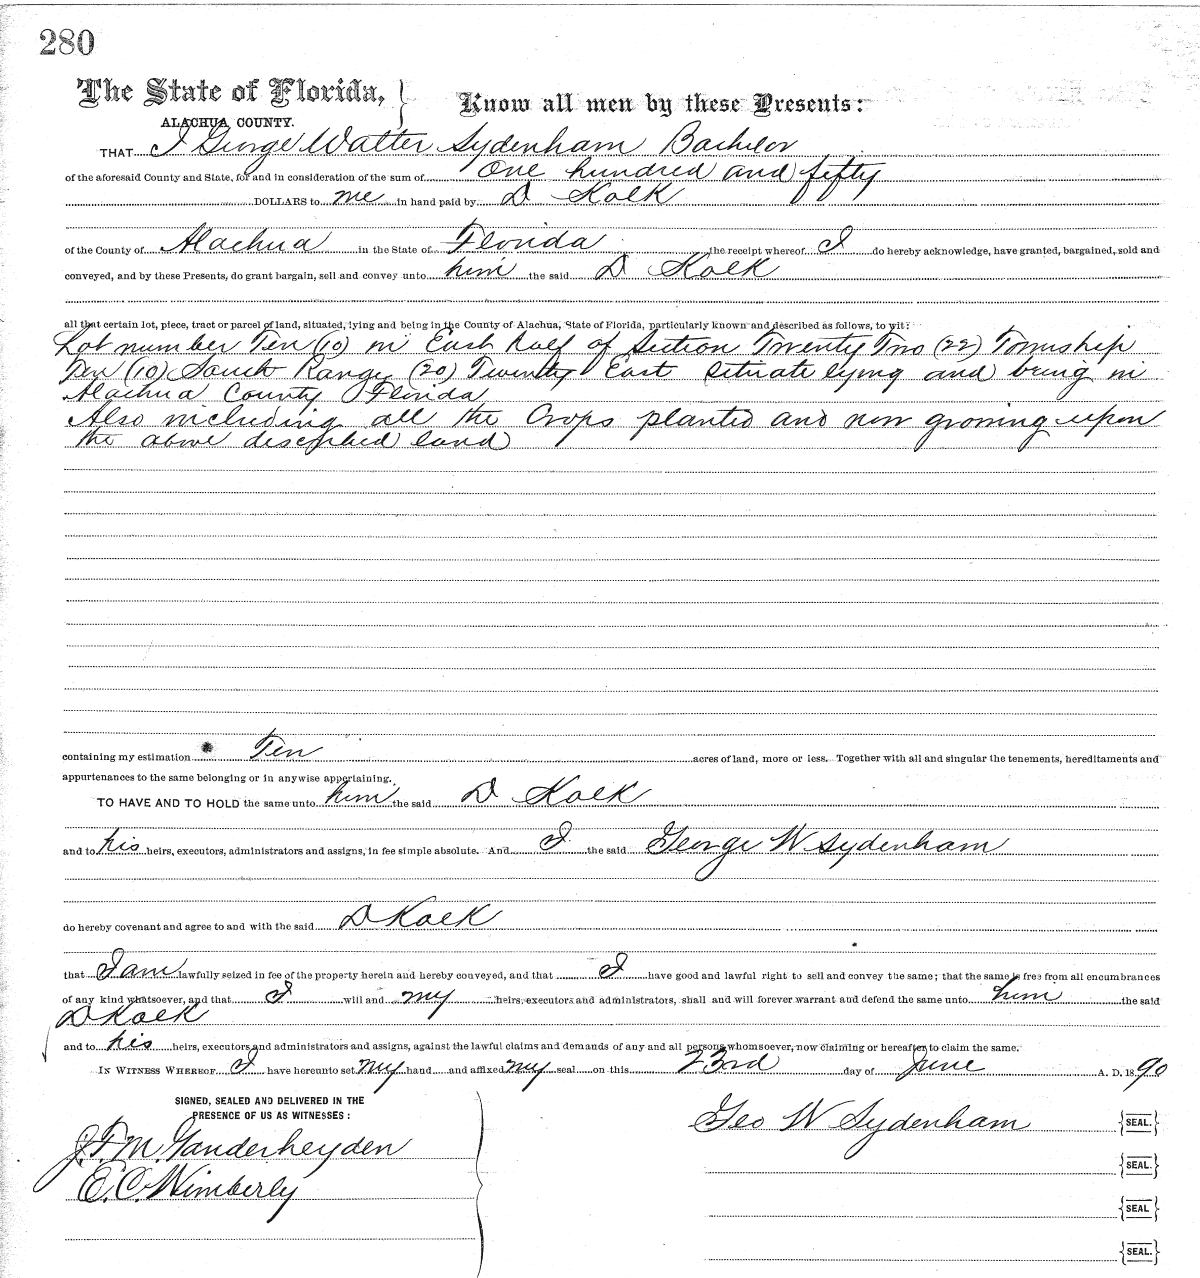 280
The State of Florida, } Know all men by these Presents:
ALACHUA COUNTY.
THAT I George Walter Sydenham Bachelor
of the aforesaid County and State, for and in consideration of the sum of One hundred and fifty
DOLLARS to me in hand paid by D Kolk
of the County of Alachua in the State of Florida the receipt whereof I do hereby acknowledge, have granted, bargained, sold and
conveyed, and by these Presents, do grant bargain, sell and convey unto him the said D Kolk
all that certain lot, piece, tract or parcel of land, situated, lying and being in the County of Alachua, State of Florida, particularly known and described as follows, to wit:
Lot number Ten (10) in East half of Section Twenty Two (22) Township
Ten (10) South Range (20) Twenty East situate lying and being in
Alachua County Florida
Also including all the Crops planted and now growing upon
the above described land
containing my estimation Ten acres of land, more or less. Together with all and singular the tenements, hereditaments and
appurtenances to the same belonging or in anywise appertaining.
TO HAVE AND TO HOLD the same unto him the said D Kolk
and to his heirs, executors, administrators and assigns, in fee simple absolute. And I the said George W Sydenham
do hereby covenant and agree to and with the said D Kolk
that I am lawfully seized in fee of the property herein and hereby conveyed, and that I have good and lawful right to sell and convey the same; that the same is free from all encumbrances
of any kind whatsoever, and that I will and my heirs, executors and administrators, shall and will forever warrant and defend the same unto him the said
D Kolk
and to his heirs, executors and administrators and assigns, against the lawful claims and demands of any and all persons whomsoever, now claiming or hereafter to claim the same.
IN WITNESS WHEREOF I have hereunto set my hand and affixed my seal on this 23rd day of June A. D. 1890
SIGNED, SEALED AND DELIVERED IN THE
PRESENCE OF US AS WITNESSES:
Geo W Sydenham {SEAL.}
J.F.M. Vanderheyden
{SEAL.}
E. C. Wimberly
{SEAL}
{SEAL.}